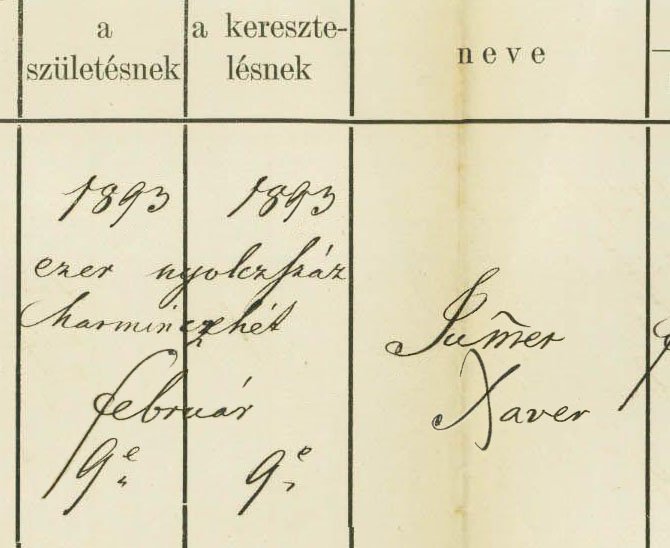 a születésnek
a keresztelésnek
neve
1893 1893
ezer nyolczszáz
harminczhét
február
9e 9e
Jum̃er
Xaver